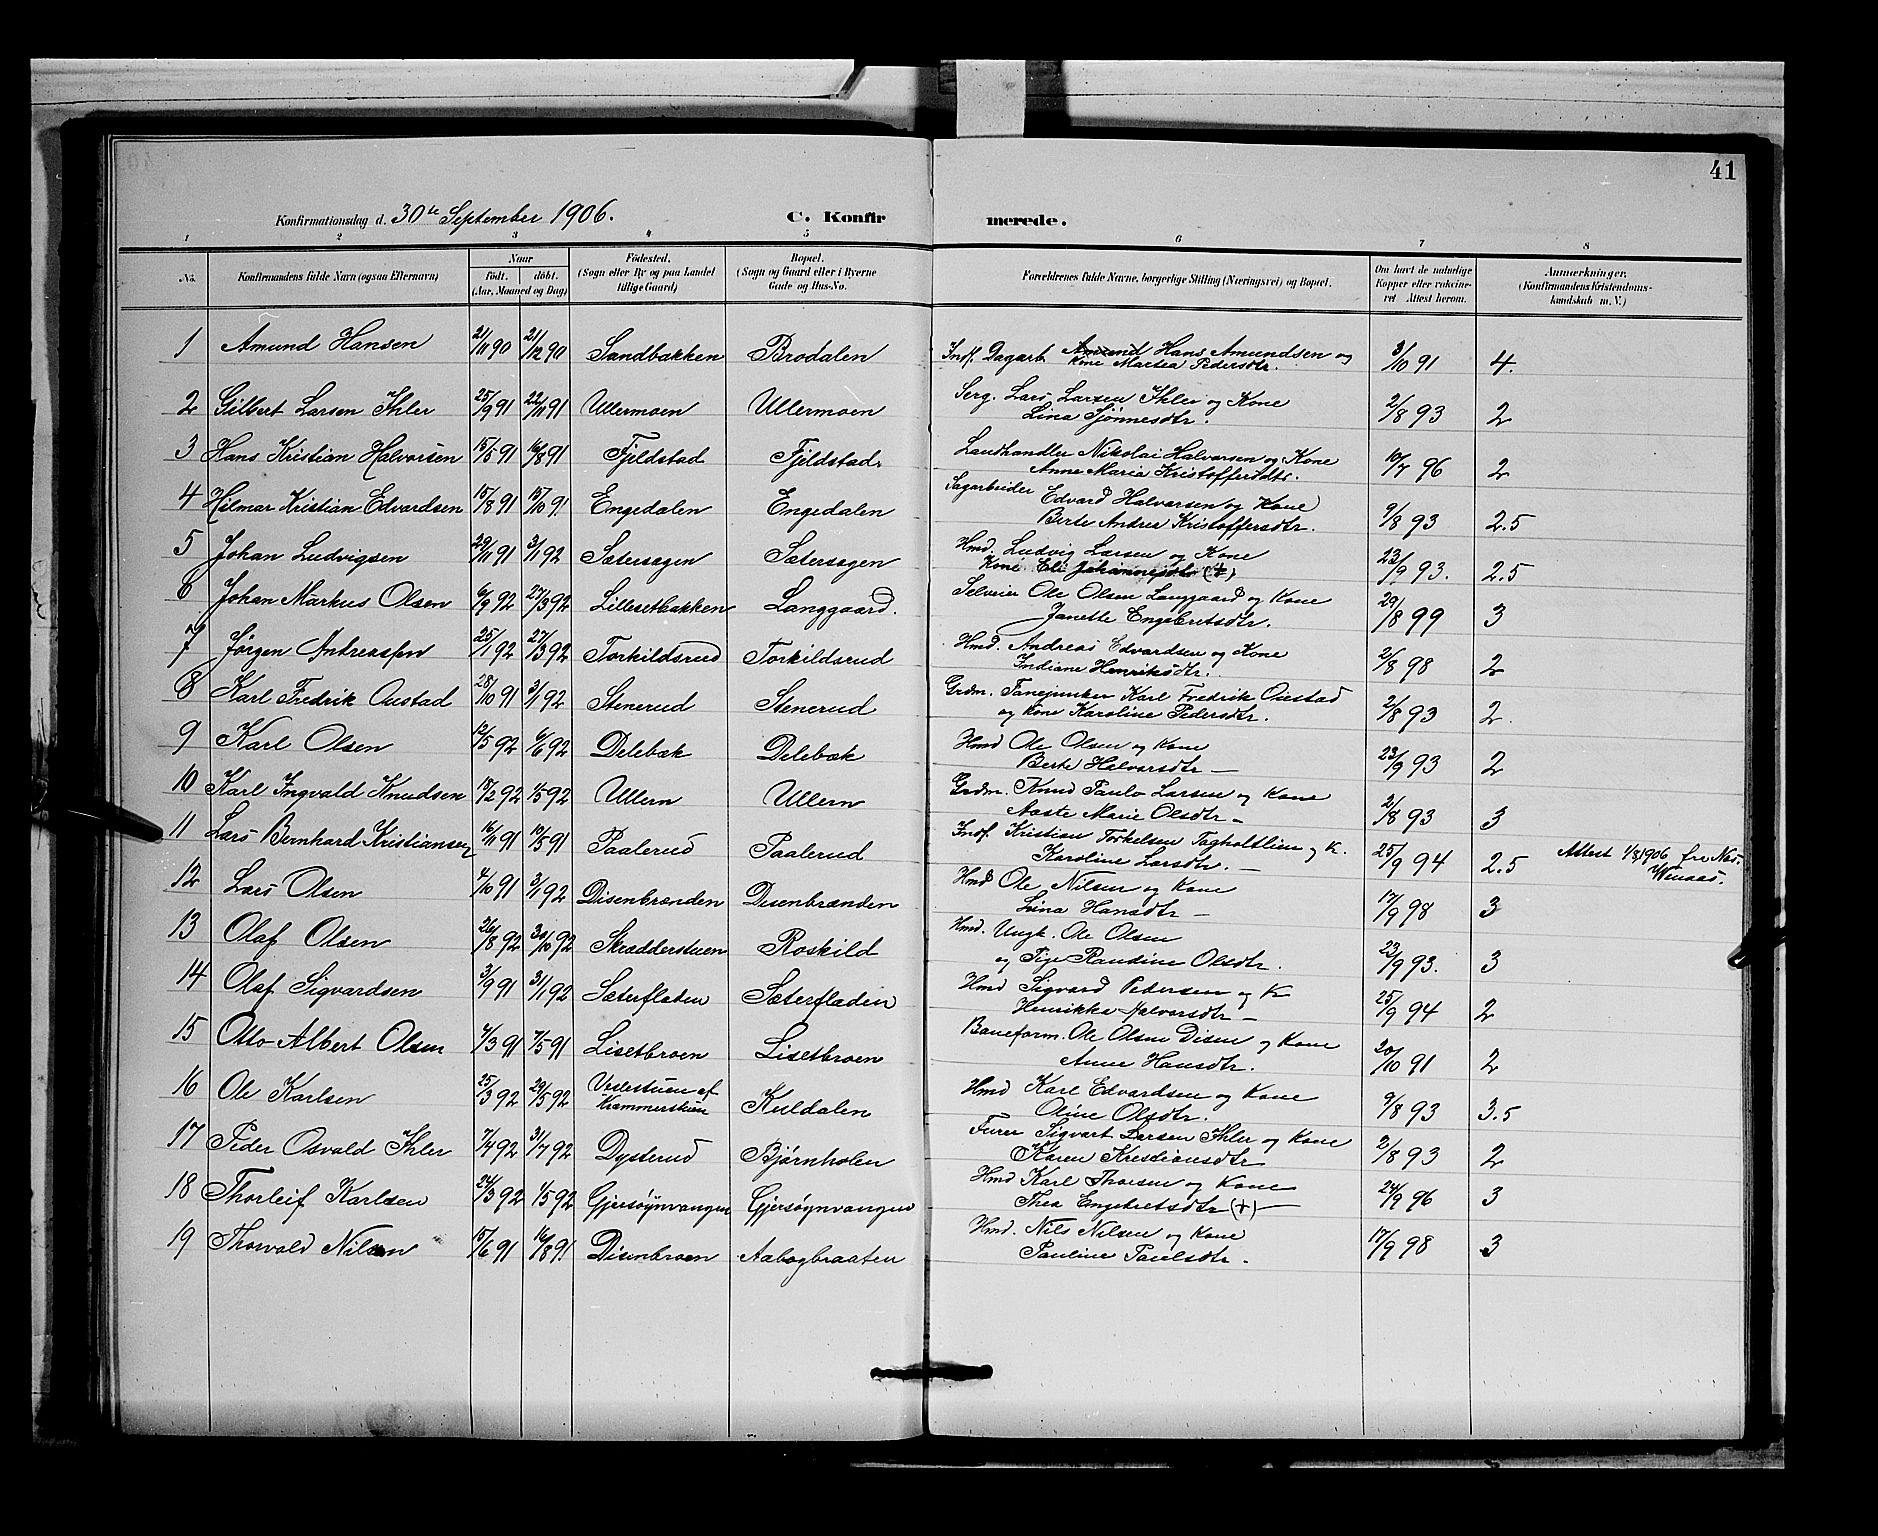 41
Konfirmationsdag d. 30te September 1906. C. Konfirmerede.
1 2 3 4 5 6 7 8
No. Konfirmandens fulde Navn (ogsaa Efternavn) Naar født. døbt. (Aar, Maaned og Dag) Fødested. (Sogn eller By og paa Landet tillige Gaard) Bopæl. (Sogn og Gaard eller i Byerne Gade og Hus-No. Forældrenes fulde Navne, borgerlige Stilling (Næringsvei) og Bopæl. Om havt de naturlige Kopper eller vakcineret Attest herom. Anmærkninger. (Konfirmandens Kristendomskundskab m. V.)
1 Amund Hansen 21/11 90 21/12 90 Sandbakken Brodalen Inf. Dagarb. Amund Hans Amundsen og Kone Martea Pedersdtr. 3/10 91 4.
2 Gilbert Larsen Ihler 25/9 91 22/11 91 Ullermoen Ullermoen Serg. Lars Larsen Ihler og Kone Lina Tjønnesdtr. 2/8 93 2
3 Hans Kristian Halvorsen 15/5 91 16/8 91 Fjeldstad Fjeldstad Landhandler Nikolai Halvorsen og Kone Anne Maria Kristoffersdtr. 10/7 96 2
4 Hilmar Kristian Edvardsen 15/8 91 15/10 91 Engedalen Engedalen Sagarbeider Edvard Halvorsen og Kone Berte Andrea Kristoffersdtr. 9/8 93 2.5
5 Johan Ludvigsen 29/11 91 3/1 92 Sætersagen Sætersagen Hmd. Ludvig Larsen og Kone Kone Eli Johannesdtr (+) 23/9 93. 2.5
6 Johan Markus Olsen 6/2 92 27/3 92 Lillesetbakken Langgaard. Selveier Ole Olsen Langgaard og Kone Janette Engebretsdtr. 29/8 99 3
7 Jørgen Andreassen 25/1 92 27/3 92 Torkildsrud Torkildsrud Hmd. Andreas Edvardsen og Kone Indiane Henriksdtr. 2/8 98 2
8 Karl Fredrik Oustad 28/10 91 3/1 92 Stenerud Stenerud Grdm. Fanejunker Karl Fredrik Oustad og Kone Karoline Pedersdtr. 2/8 93 2.
9 Karl Olsen 12/5 92 6/6 92 Delebæk Delebæk Hmd Ole Olsen og Kone Berte Halvorsdtr — 23/9 93 2
10 Karl Ingvald Knudsen 18/2 92 1/5 92 Ullern Ullern Grdm. Knud Paulo Larsen og Kone Aaste Marie Olsdtr — 2/8 93 3
11 Lars Bernhard Kristiansen 16/11 91 10/5 91 Paalerud Paalerud Indf. Kristian Torkelsen Tagholtlien og K. Karoline Larsdtr. — 25/9 94 2.5 Attest 1/3 1906 fra Næs,
12 Lars Olsen 4/10 91 3/1 92 Disenbrænden Disenbrænden Hmd Ole Nilsen og Kone Lina Hansdtr — 17/9 98 3
13 Olaf Olsen 26/8 92 30/10 92 Skrædderstuen Roskild Hmd. Ungk. Ole Olsen og Pige Randine Olsdtr. 23/9 93. 3
14 Olaf Sigvardsen 3/9 91 31/1 92 Sæterfladen Sæterfladen Hmd Sigvard Pedersen og K Henrikka Halvorsdtr — 25/9 94 2
15 Otto Albert Olsen 4/3 91 7/5 91 Lisetbroen Lisetbroen Baneform. Ole Olsen Disen og Kone Anne Hansdtr. 20/10 91 2
16 Ole Karlsen 25/3 92 29/5 92 Veslestuen af Kræmmerstuen Kuldalen Hmd Karl Edvardsen og Kone Oline Olsdtr. 9/8 93 3.5
17 Peder Osvald Ihler 7/4 92 31/7 92 Dysterud Bjørnholen Furer Sigvart Larsen Ihler og Kone Karen Kristiansdtr 2/8 93 2
18 Thorleif Karlsen 24/3 92 1/5 92 Gjersøynvangen Gjersøynvangen Hmd Karl Thoresen og Kone Thea Engebretsdtr (+) — 24/9 96 3
19 Thorvald Nilsen 15/6 91 16/8 91 Disenbroen Aabogbraaten Hmd. Nils Nilsen og Kone Pauline Paulsdtr. 17/9 98 3